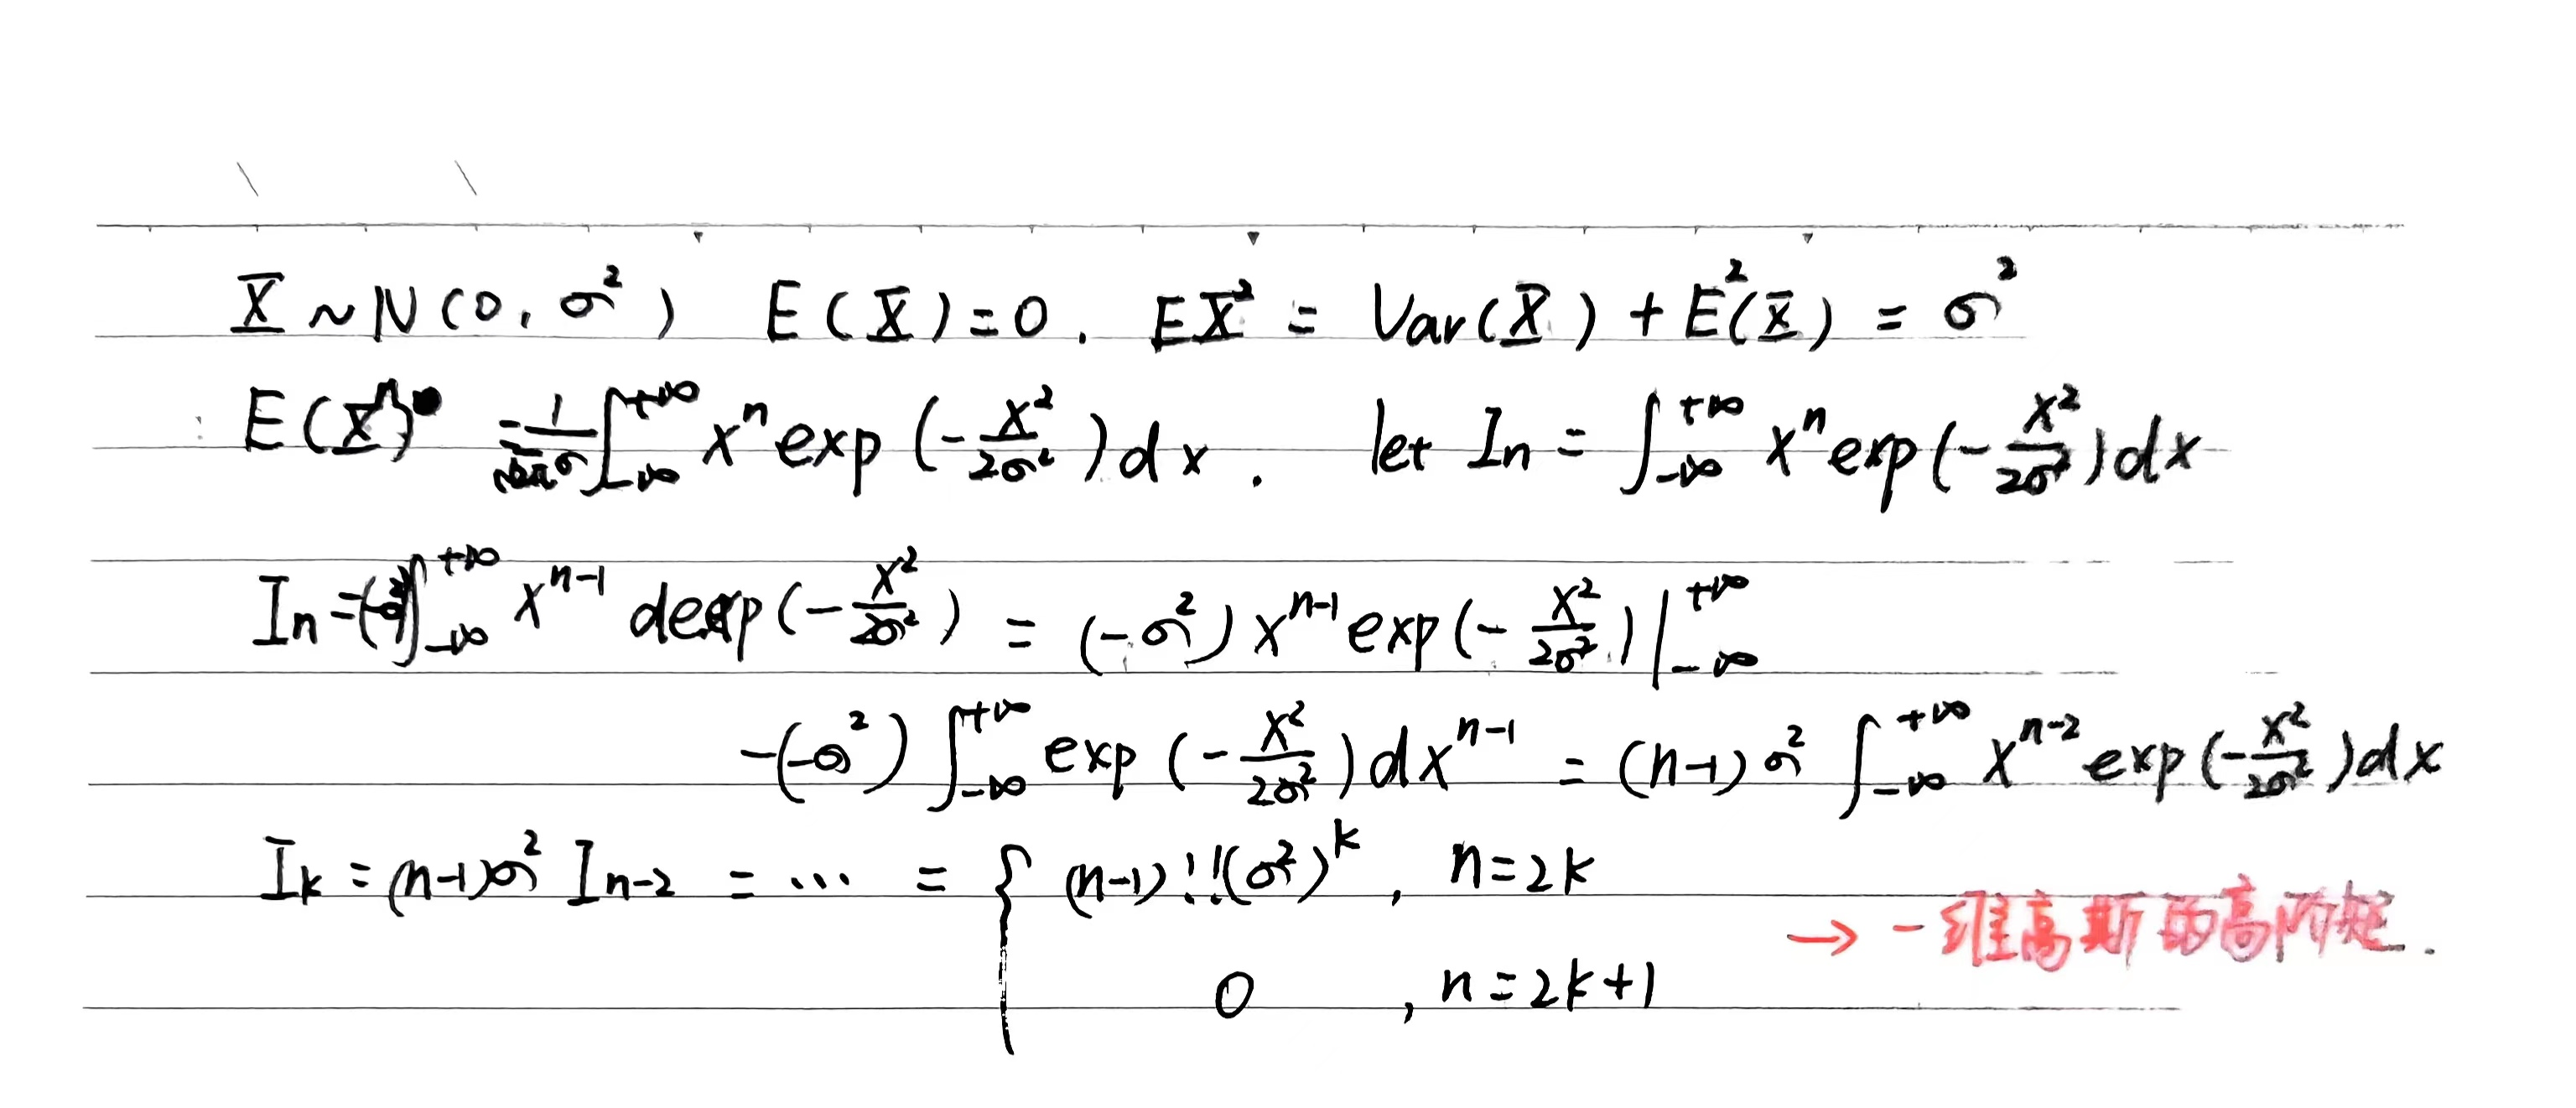 X ~ N(0, σ²)  E(X)=0.  EX² = Var(X) + E²(X) = σ²
E(Xⁿ) = 1/(√2π σ) ∫_{-∞}^{+∞} xⁿ exp(-x²/2σ²)dx.  let In = ∫_{-∞}^{+∞} xⁿ exp(-x²/2σ²)dx
In = (-σ²)∫_{-∞}^{+∞} x^{n-1} d exp(-x²/2σ²) = (-σ²) x^{n-1} exp(-x²/2σ²)|_{-∞}^{+∞}
-(-σ²) ∫_{-∞}^{+∞} exp(-x²/2σ²)dx^{n-1} = (n-1)σ² ∫_{-∞}^{+∞} x^{n-2} exp(-x²/2σ²)dx
I_k = (n-1)σ² I_{n-2} = ... = { (n-1)!!(σ²)^k, n=2k
→ 一维高斯的高阶矩.
0, n=2k+1